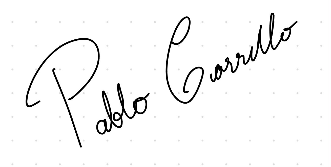 Pablo Carrillo